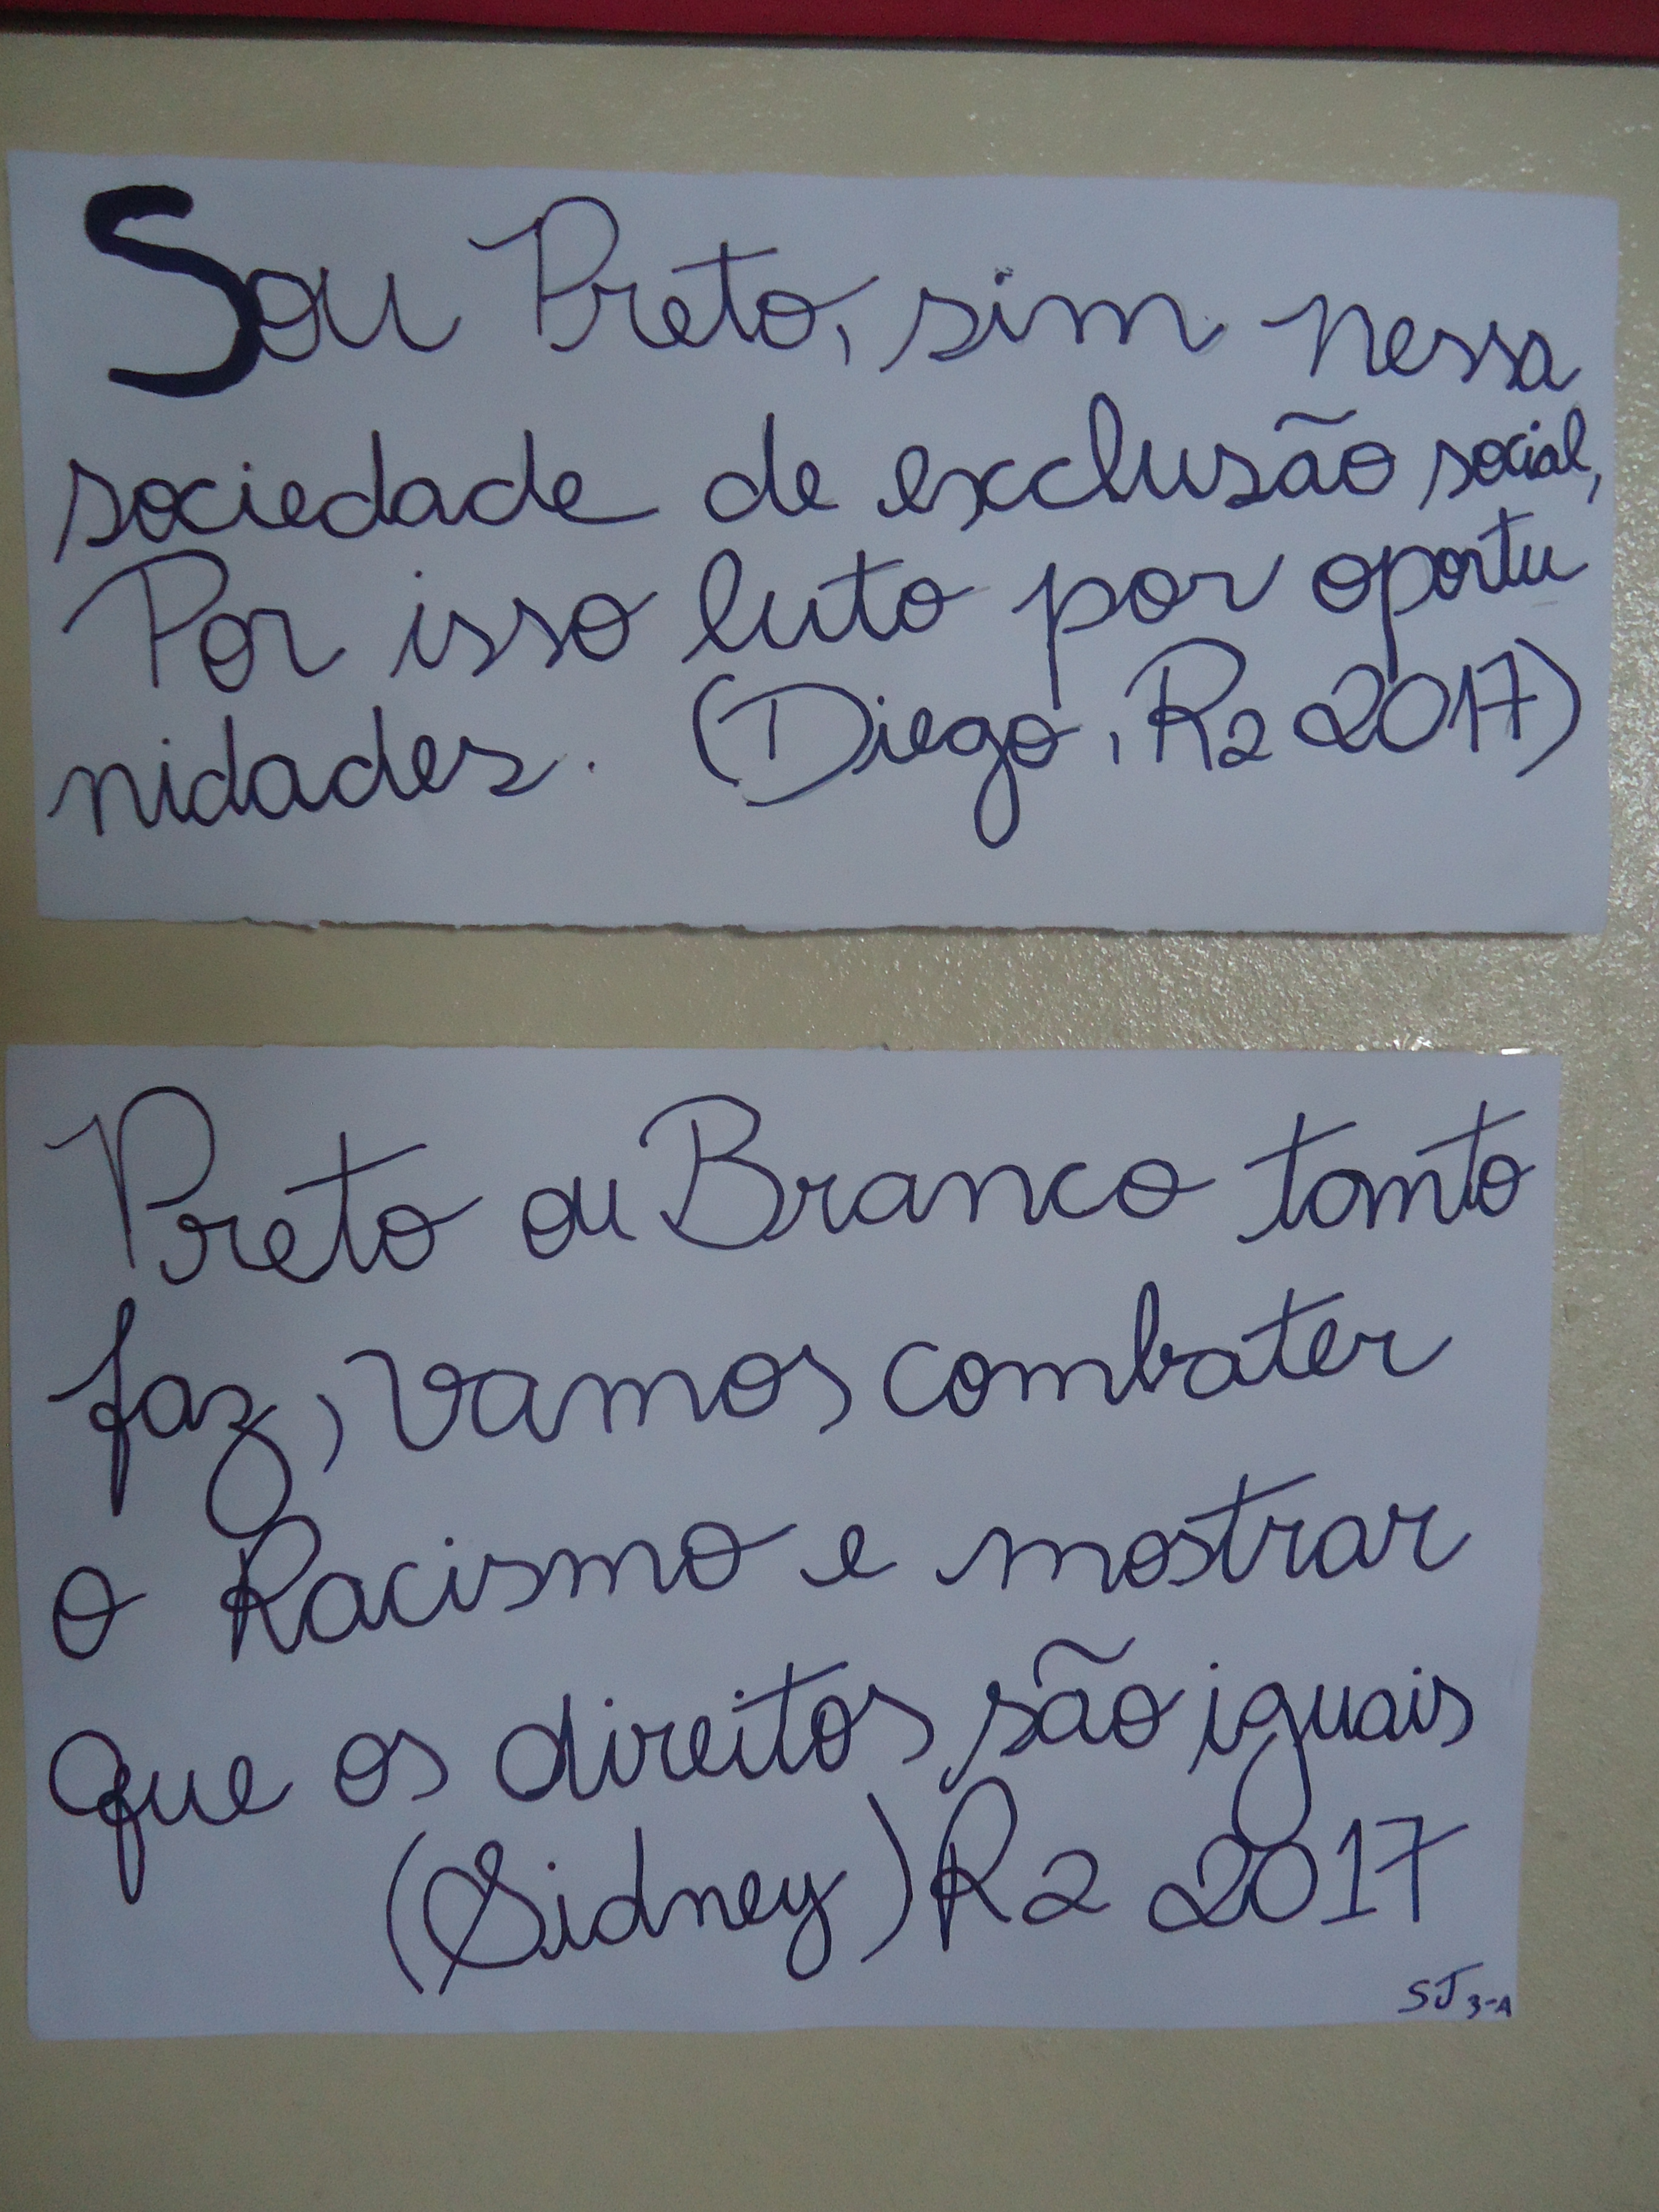 Sou Preto, sim nessa
sociedade de exclusão social,
Por isso luto por oportu
nidades. (Diego, R2 2017)
Preto ou Branco tanto
faz, vamos combater
o Racismo e mostrar
que os direitos são iguais
(Sidney) R2 2017
SJ 3-A